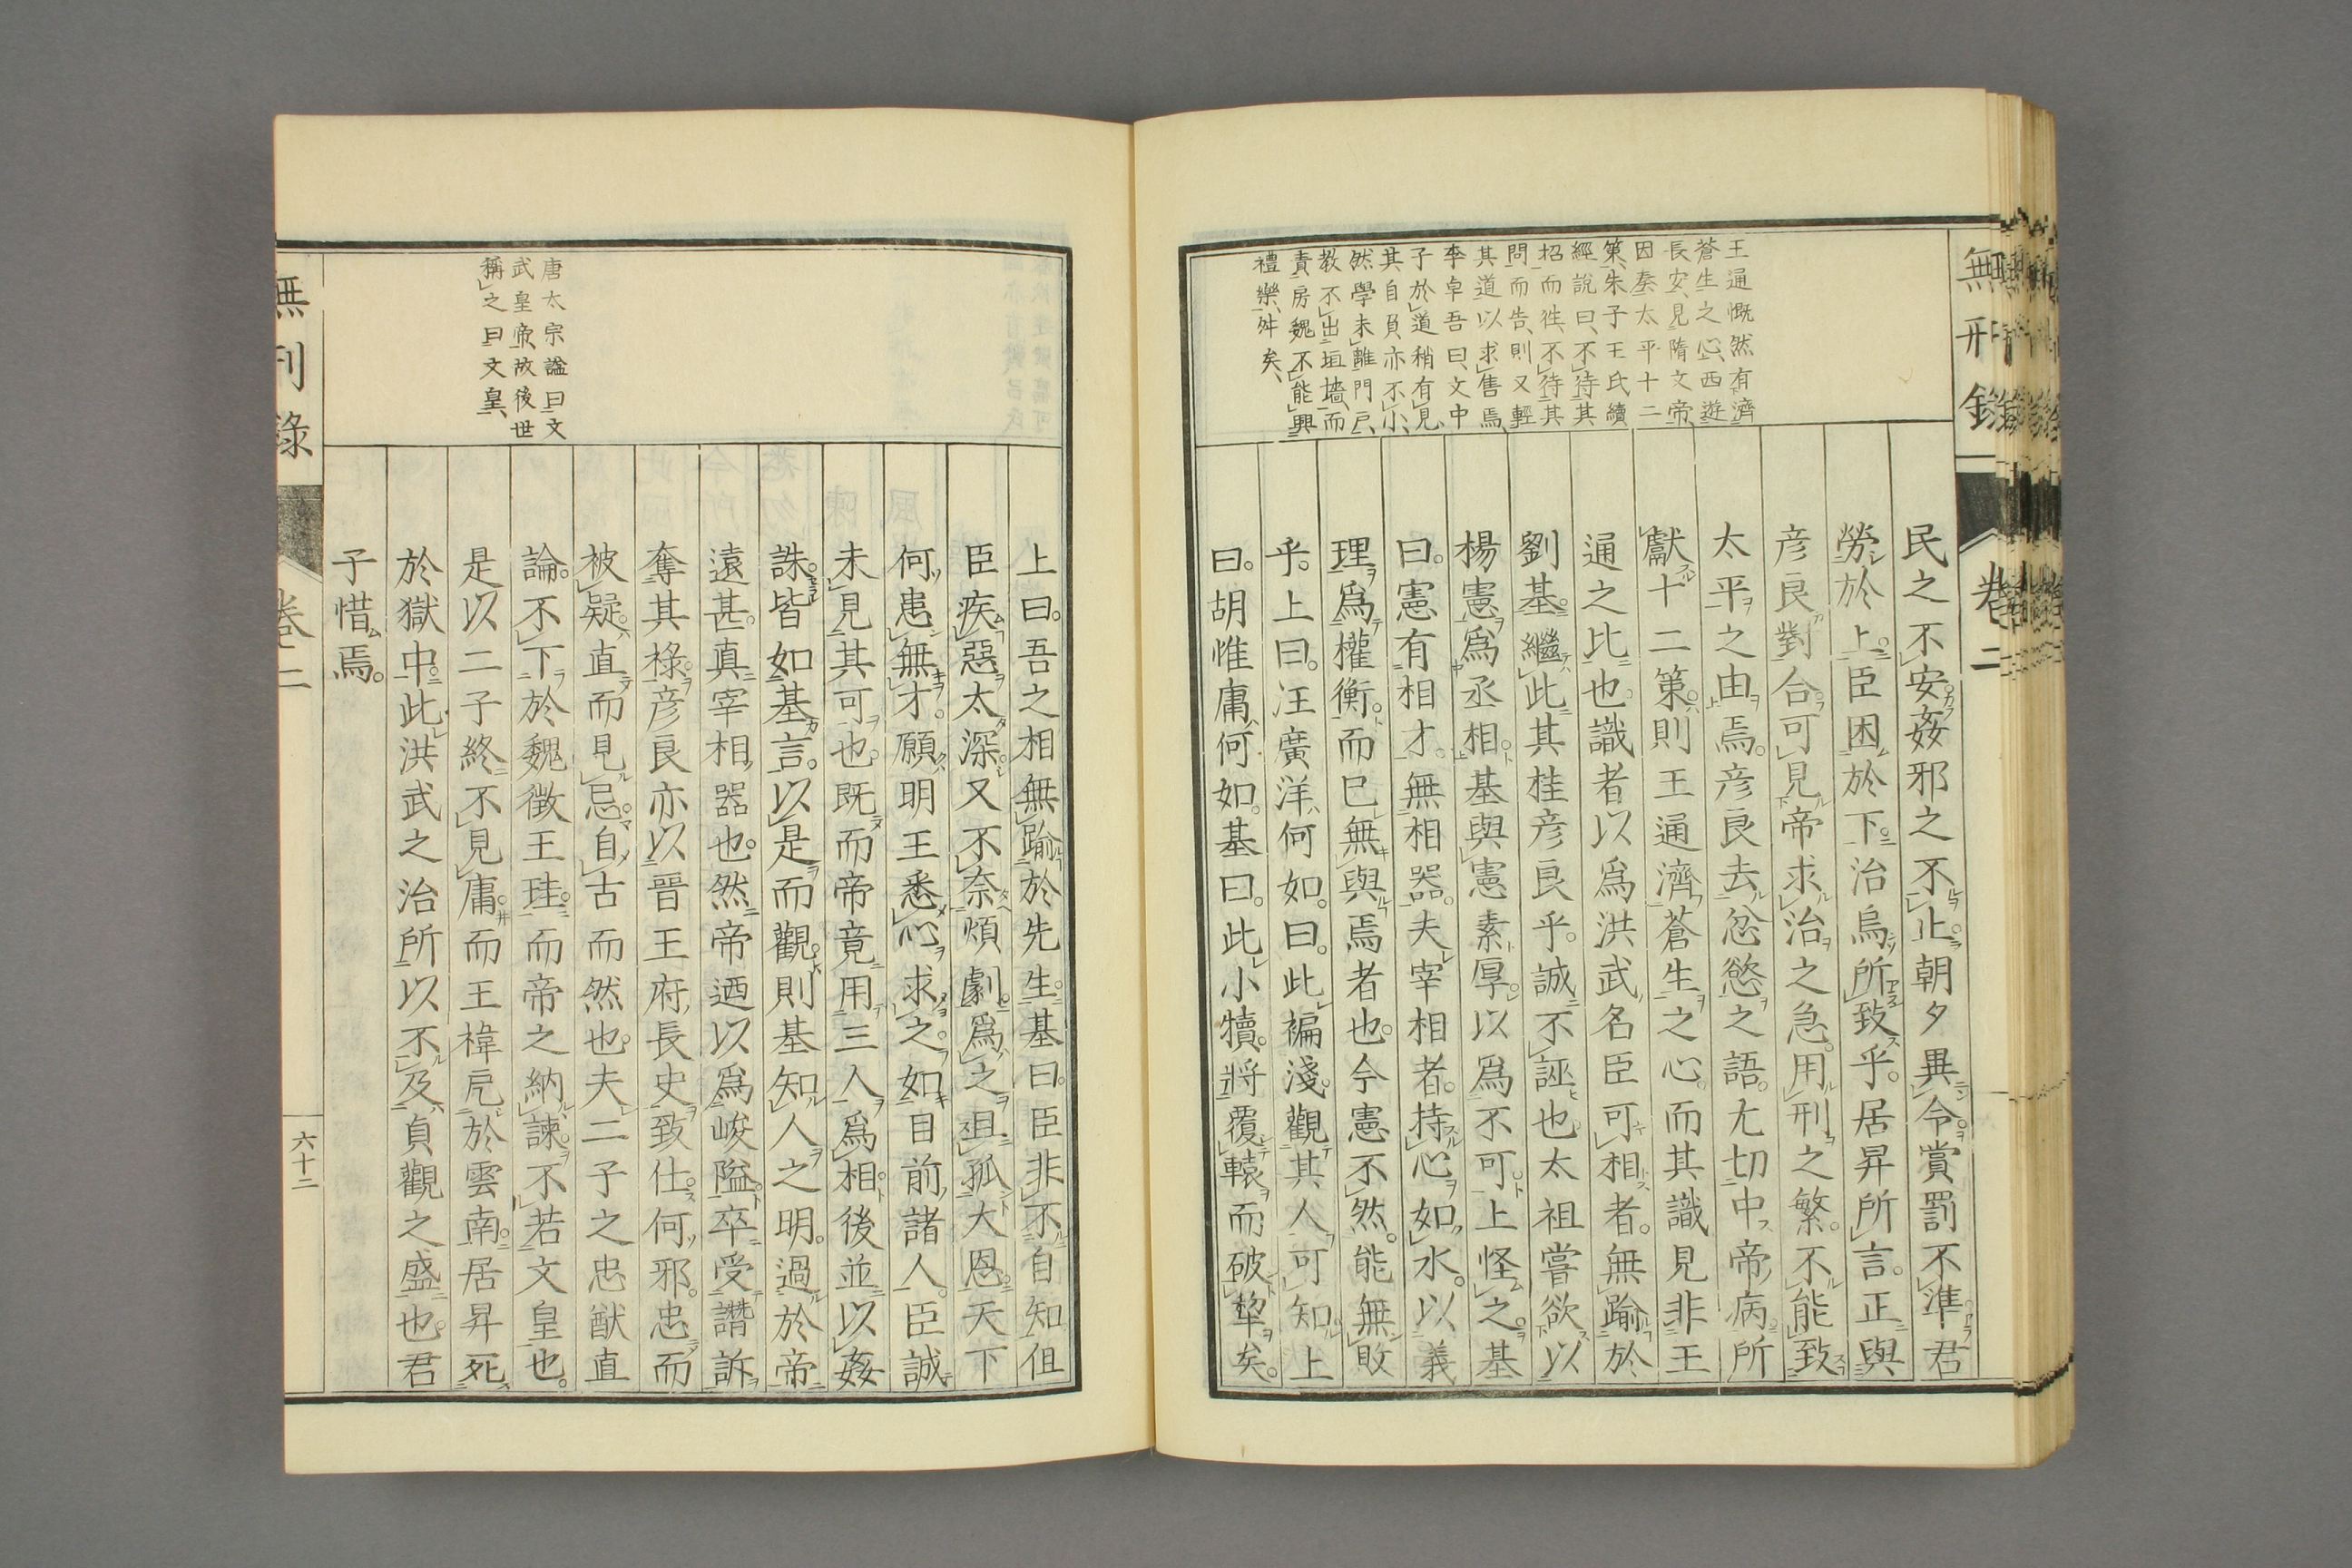 無刑錄
卷二
王通慨然有濟
蒼生之心、西遊
長安、見隋文帝、
因奏太平十二
策、朱子王氏續
經說曰、不待其
招而徃、不待其
問而告、則又輕
其道以求售焉、
李卓吾曰、文中
子於道稍有見、
其自負亦不小、
然學未離門戶、
教不出垣墻、而
責房魏不能興
禮樂、舛矣、
民之不安姦邪之不止。朝夕異令賞罰不準。君
勞於上。臣困於下。治烏所致乎。居昇所言。正與
彦良對合。可見帝求治之急。用刑之繁。不能致
太平之由焉。彦良去忿慾之語。尤切中帝病。所
獻十二策。則王通濟蒼生之心。而其識見非王
通之比也。識者以爲洪武名臣可相者。無踰於
劉基。繼此其桂彦良乎。誠不誣也。太祖嘗欲以
楊憲爲丞相。基與憲素厚。以爲不可。上怪之。基
曰。憲有相才。無相器。夫宰相者。持心如水。以義
理爲權衡。而已無與焉者也。今憲不然。能無敗
乎。上曰。汪廣洋何如。曰。此褊淺。觀其人可知。上
曰。胡惟庸何如。基曰。此小犢。將覆轅而破犂矣。
唐太宗謚曰文
武皇帝、故後世
稱之曰文皇、
上曰。吾之相無踰於先生。基曰。臣非不自知。但
臣疾惡太深。又不奈煩劇。爲之且孤大恩。天下
何患無才。願明王悉心求之。如目前諸人。臣誠
未見其可也。既而帝竟用三人爲相。後並以姦
誅。皆如基言。以是而觀。則基知人之明。過於帝
遠甚。真宰相器也。然帝迺以爲峻隘。卒受讒訴
奪其祿。彦良亦以晋王府長史致仕。何邪。忠而
被疑。直而見忌。自古而然也。夫二子之忠猷直
論。不下於魏徵王珪。而帝之納諫。不若文皇也。
是以二子終不見庸。而王禕戹於雲南。居昇死
於獄中。此洪武之治所以不及貞觀之盛也。君
子惜焉。
無刑錄
卷二
六十二